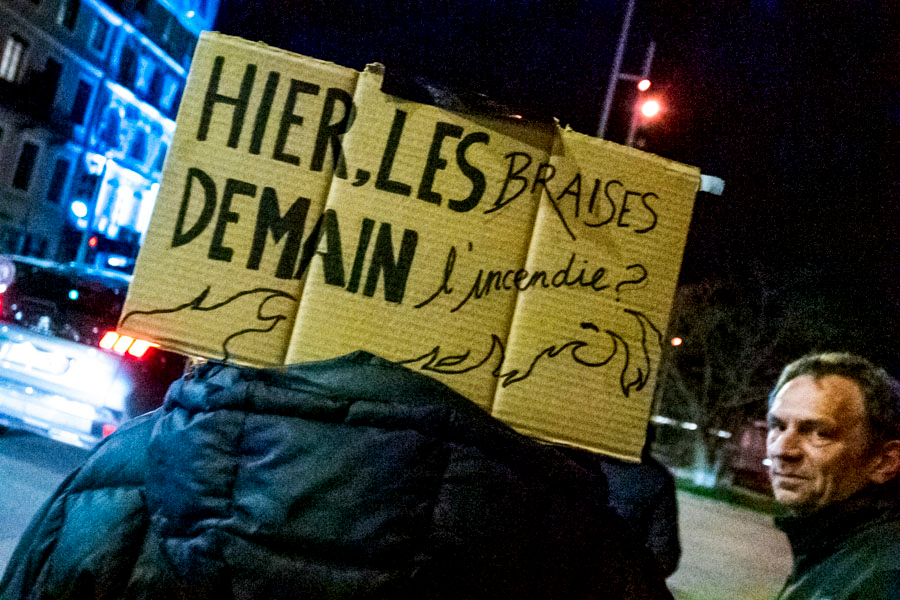 HIER, LES BRAISES
DEMAIN l'incendie ?